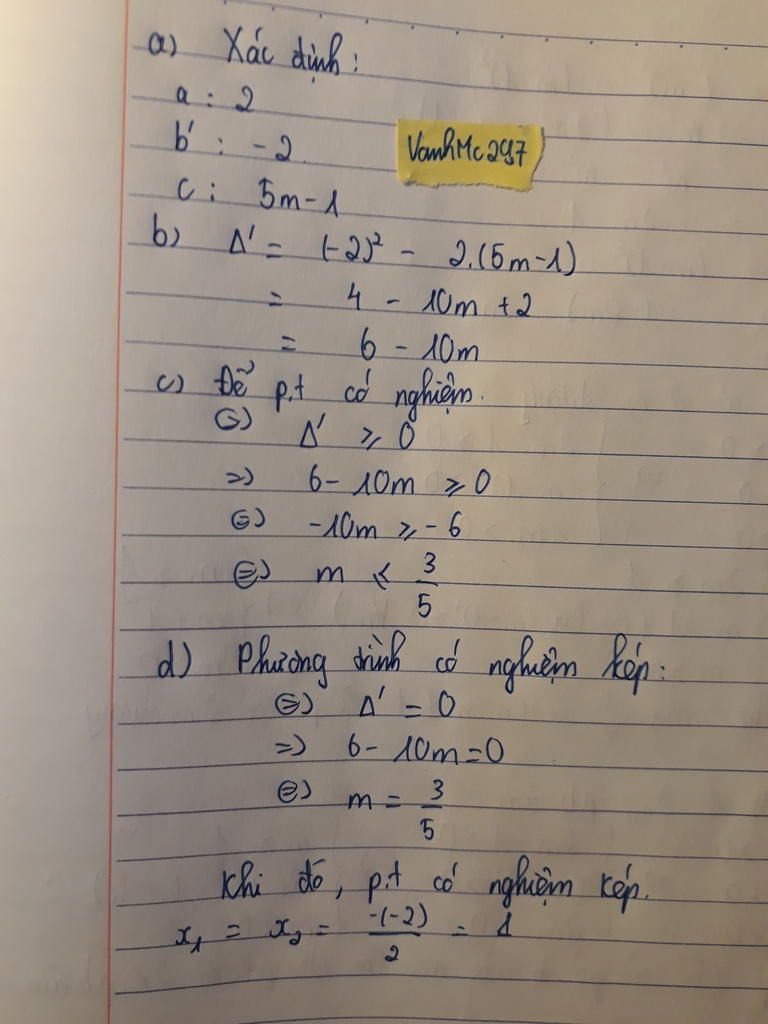 a) Xác định:
a : 2
b' : -2
VanhMc297
c : 5m-1
b) Δ' = (-2)² - 2.(5m-1)
= 4 - 10m + 2
= 6 - 10m
c) Để p.t có nghiệm.
⇔ Δ' ≥ 0
=> 6 - 10m ≥ 0
⇔ -10m ≥ -6
⇔ m ≤ 3/5
d) Phương trình có nghiệm kép:
⇔ Δ' = 0
=> 6 - 10m = 0
⇔ m = 3/5
Khi đó, p.t có nghiệm kép.
x₁ = x₂ = -(-2)/2 = 1